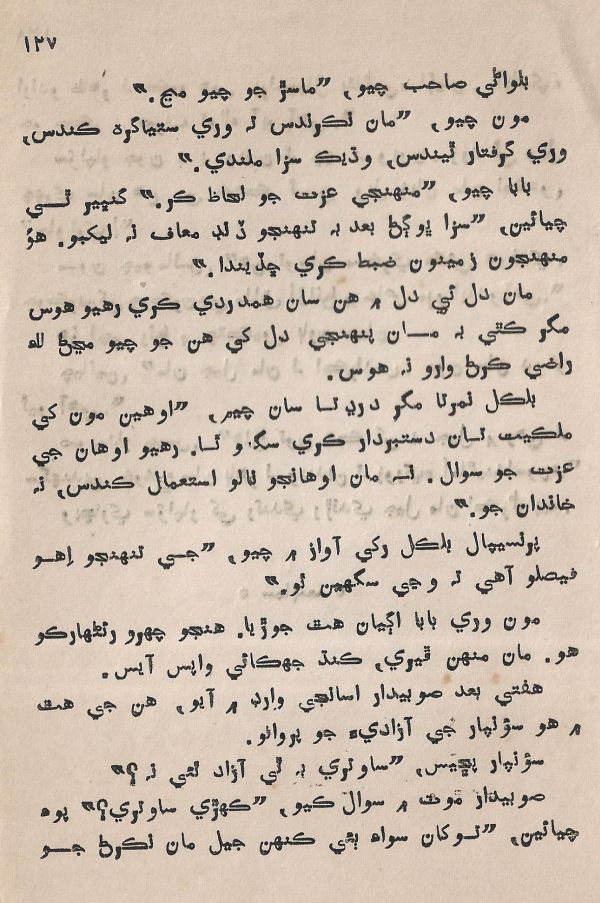 ١٢٧
بلواڻي صاحب چيو، ”ماسڙ جو چيو مڃ.“
مون چيو، ”مان نڪرندس ته وري ستياگره ڪندس،
وري گرفتار ٿيندس، وڌيڪ سزا ملندي.“
بابا چيو، ”منهنجي عزت جو لحاظ ڪر.“ گنڀير ٿي
چيائين، ”سزا ڀوڳڻ بعد به تنهنجو ڏنڊ معاف نه ليکبو. هو
منهنجون زمينون ضبط ڪري ڇڏيندا.“
مان دل ئي دل ۾ هن سان همدردي ڪري رهيو هوس
مگر ڪٿي به مان پنهنجي دل کي هن جو چيو مڃڻ لاءِ
راضي ڪرڻ وارو نه هوس.
بلڪل نمرتا مگر درڍتا سان چيم، ”اوهين مون کي
ملڪيت تان دستبردار ڪري سگهو ٿا. رهيو اوهان جي
عزت جو سوال. نه مان اوهانجو نالو استعمال ڪندس، نه
خاندان جو.“
پرنسيپال بلڪل رکي آواز ۾ چيو، ”جي تنهنجو اهو
فيصلو آهي ته وڃي سگهين ٿو.“
مون وري بابا اڳيان هٿ جوڙيا. هنجو چهرو رئڻهارڪو
هو. مان منهن ڦيري، ڪنڌ جهڪائي واپس آيس.
هفتي بعد صوبيدار اسانجي وارڊ ۾ آيو، هن جي هٿ
۾ هو سؤنپار جي آزاديءَ جو پروانو.
سؤنپار پڇيس، ”ساوتري به ٿي آزاد ٿئي نه؟“
صوبيدار موٽ ۾ سوال ڪيو، ”ڪهڙي ساوتري؟“ پوءِ
چيائين، ”توکان سواءِ ٻئي ڪنهن جيل مان نڪرڻ جو